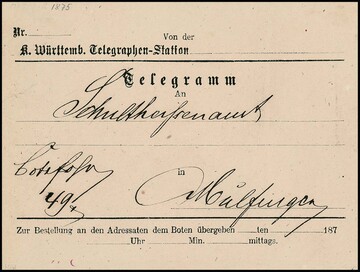 1875
Nr.
Von der
K. Württemb. Telegraphen-Station
Telegramm
An
Schultheißenamt
Botenlohn
49 x
in
Mulfingen
Zur Bestellung an den Adressaten dem Boten übergeben ten 187
Uhr Min. mittags.